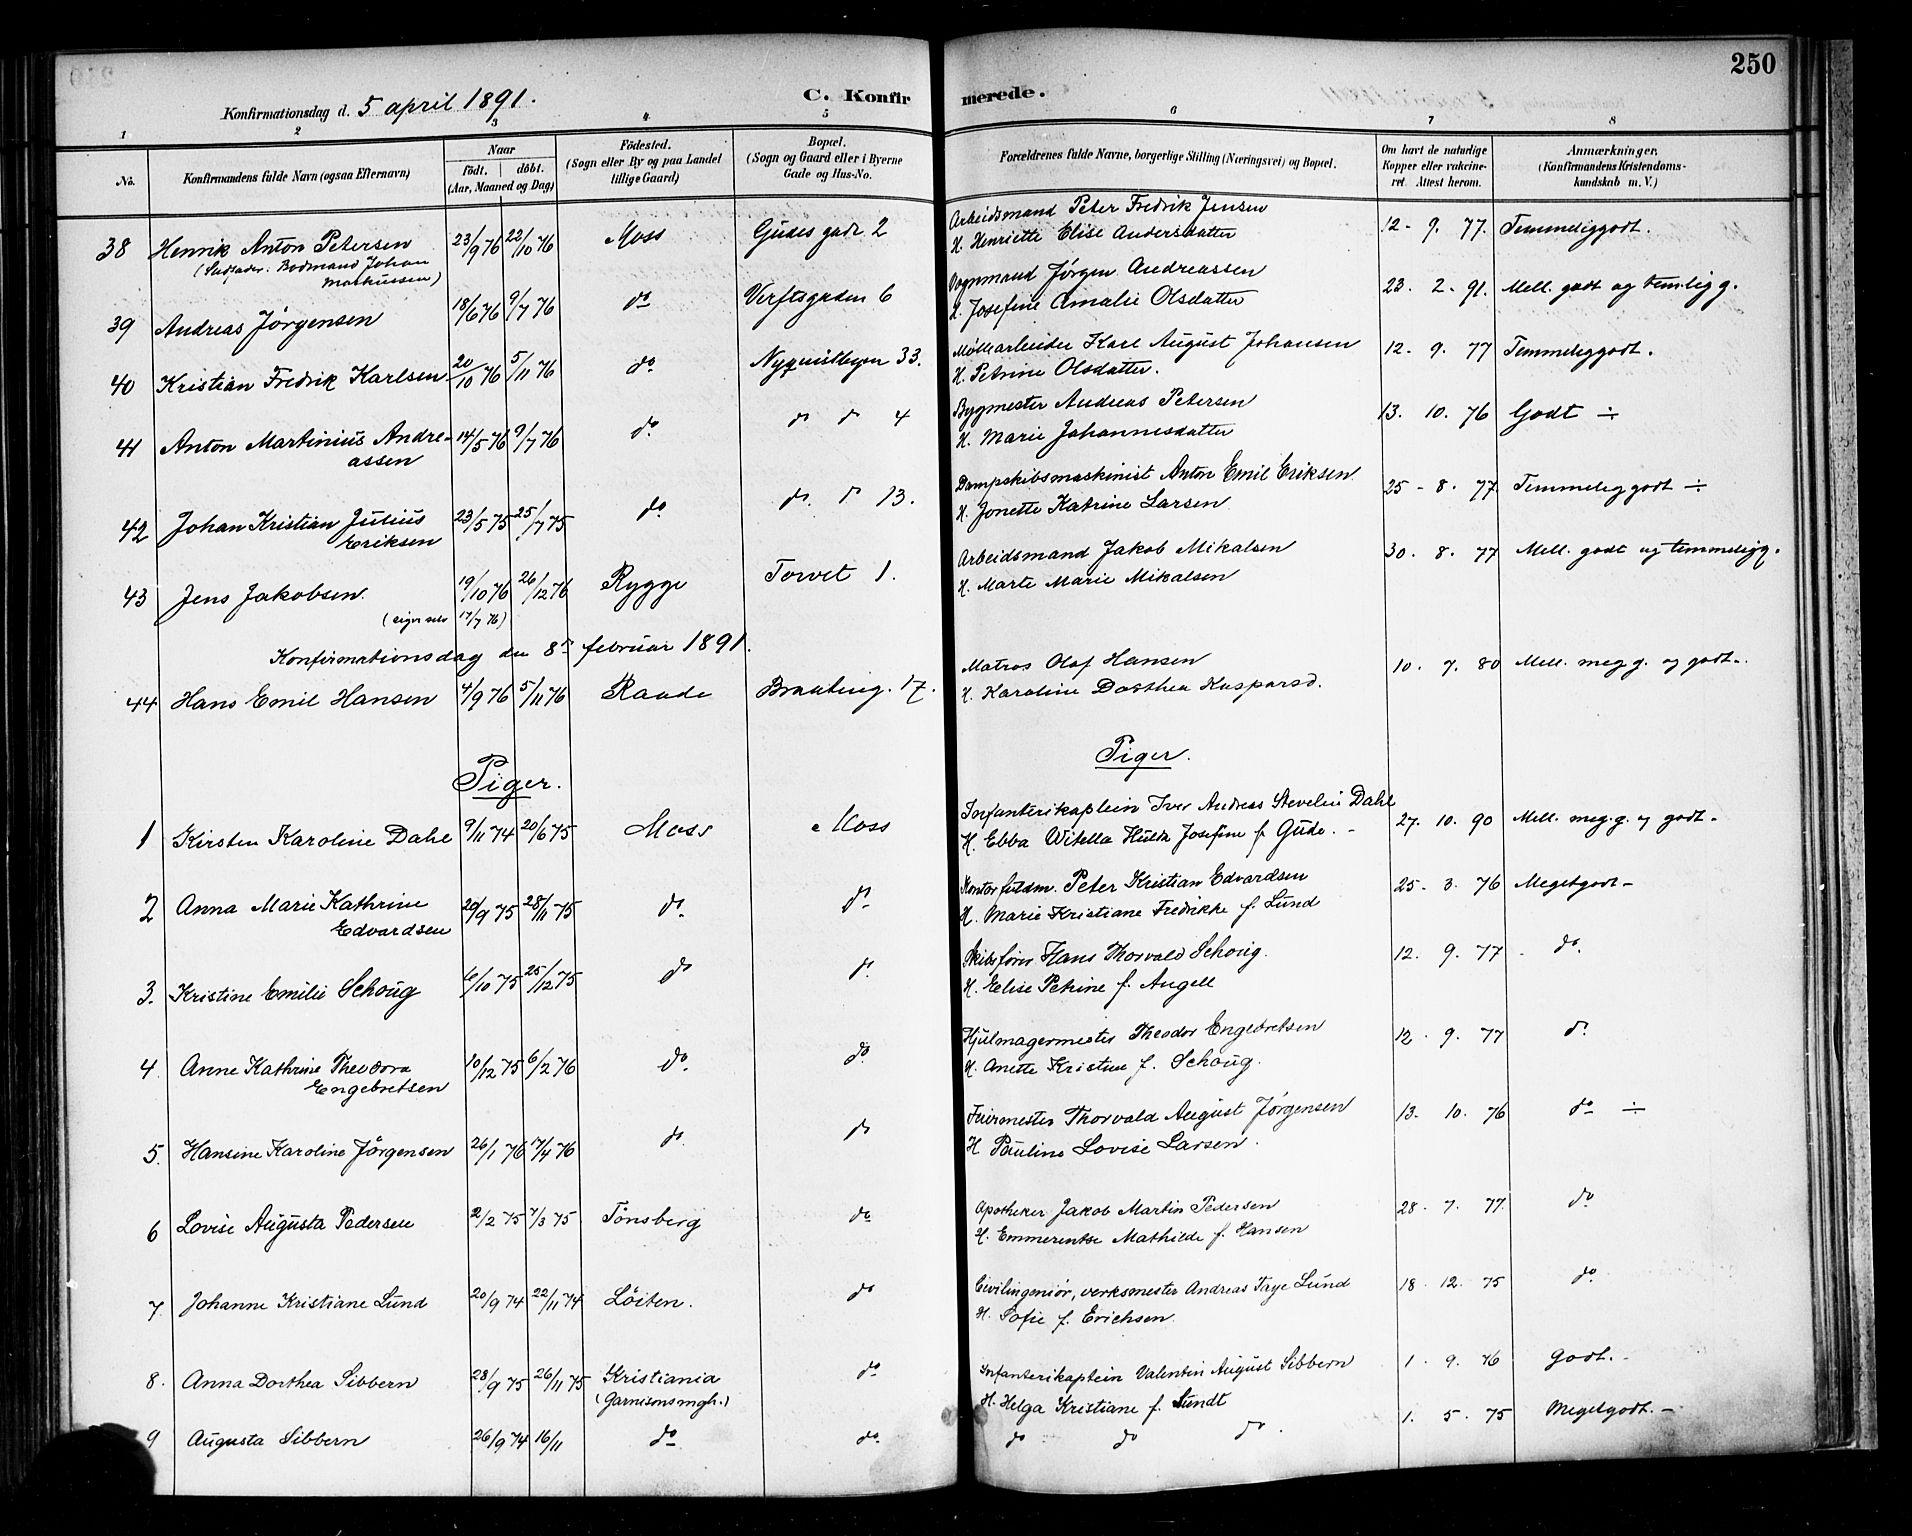 250
Konfirmationsdag d. 5 april 1891.
C. Konfirmerede.
1 2 3 4 5 6 7 8
No.
Konfirmandens fulde Navn (ogsaa Efternavn)
Naar
födt. döbt.
(Aar, Maaned og Dag)
Födested.
(Sogn eller By og paa Landet
tillige Gaard)
Bopæl.
(Sogn og Gaard eller i Byerne
Gade og Hus-No.
Forældrenes fulde Navne, borgerlige Stilling (Næringsvei) og Bopæl.
Om havt de naturlige
Kopper eller vakcine-
ret. Attest herom.
Anmærkninger.
(Konfirmandens Kristendoms-
kundskab m. V.)
38 Henrik Anton Petersen 23/9 76 22/10 76 Moss Gudes gade 2 Arbeidsmand Peter Fredrik Jensen 12 - 9. 77. Temmeliggodt.
(Stedfader: Bodmand Johan
Markussen)
H. Henriette Elise Andersdatter
39 Andreas Jørgensen 18/6 76 9/7 76 do Verftsgaden 6 Vognmand Jørgen Andreassen 23. 2. 91. Mell. godt og temlig g.
H. Josefine Amalie Olsdatter
40 Kristian Fredrik Karlsen 20/10 76 5/11 76 do. Nyquistbyen 33. Møllearbeider Karl August Johansen 12. 9. 77 Temmeliggodt.
H. Petrine Olsdatter.
41 Anton Martinius Andre-
assen 14/5 76 9/7 76 do. do do 4 Bygmester Andreas Petersen 13. 10. 76 Godt ÷
H. Marie Johannesdatter
42 Johan Kristian Julius
Eriksen 23/5 75 25/7 75 do do. do 13. Dampskibsmaskinist Anton Emil Eriksen 25 - 8. 77. Temmeliggodt ÷
H. Jonette Katrine Larsen
43 Jens Jakobsen. 19/10 76 26/12 76 Rygge Torvet 1. Arbeidsmand Jakob Mikalsen 30. 8. 77 Mell. godt og temmeligg.
(siger selv 17/7 76)
H. Marte Marie Mikalsen
Konfirmationsdag den 8de februar 1891.
44 Hans Emil Hansen 4/9 76 5/11 76 Raade Brænting. 17. Matros Olaf Hansen 10. 7. 80 Mell. meg. g. og godt.
H. Karoline Dorthea Kaspersd.
Piger. Piger.
1 Kirsten Karoline Dahl 9/11 74 20/6 75 Moss Moss Infanterikaptein Iver Andreas Stevelin Dahl 27. 10. 90 Mell. meg. g. og godt -
H. Ebba Josefine f. Gude. -
2 Anna Marie Kathrine
Edvardsen 20/9 75 28/11 75 do. do. Kontorfuldm. Peter Kristian Edvardsen 25 - 3. 76 Megetgodt -
H. Marie Kristiane Fredrikke f. Lund
3. Kristine Emilie Schoug 6/10 75 25/12 75 do do. Skibsfører Hans Thorvald Schoug. 12. 9. 77 - do.
H. Elise Petrine f. Angell
4. Anne Kathrine Theodora
Engebretsen 10/12 75 6/2 76 do. do. Hjulmagermester Theodor Engebretsen 12. 9. 77 do.
H. Anette Kristine f. Schoug.
5. Hansine Karoline Jörgensen 26/1 76 17/4 76 do. do Feiermester Thorvald August Jørgensen 13. 10. 76 do ÷
H Pauline Lovise Larsen.
6 Lovise Augusta Pedersen 2/2 75 7/3 75 Tønsberg do Apotheker Jakob Martin Pedersen 28. 7. 77. do.
H. Emmerentse Mathilde f. Hansen
7. Johanne Kristiane Lund 20/9 74 22/11 74 Löiten. do Civilingeniør, verksmester Andreas Faye Lund 18. 12. 75 do.
H. Sofie f. Erichsen.
8. Anna Dorthea Sibbern 28/9 75 26/11 75 Kristiania
(Garnisonsmgh.) do. Infanterikaptein Valentin August Sibbern 1. 9. 76 Godt. -
H. Helga Kristiane f. Sundt
9 Augusta Sibbern 26/9 74 16/11 do do. do do do. 1. 5. 75 Megetgodt. -